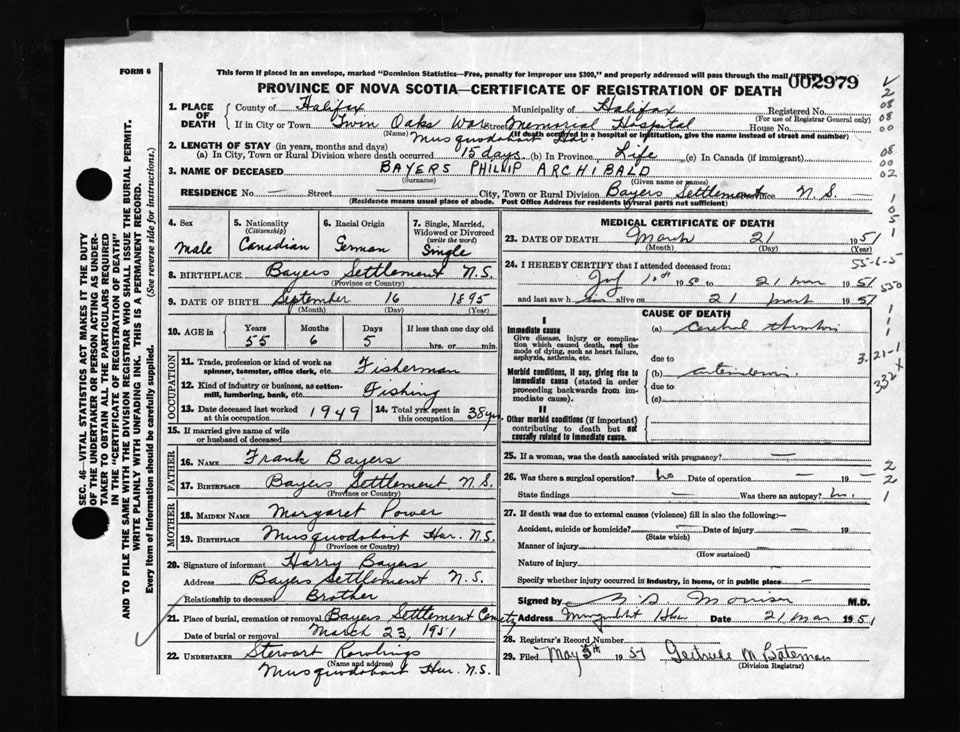 FORM 6
This form if placed in an envelope, marked "Dominion Statistics—Free, penalty for improper use $300," and properly addressed will pass through the mail "FREE"
002979
PROVINCE OF NOVA SCOTIA—CERTIFICATE OF REGISTRATION OF DEATH
1. PLACE OF DEATH
County of Halifax Municipality of Halifax Registered No.
(For use of Registrar General only)
If in City or Town Twin Oaks War Street Memorial Hospital House No.
(Name) (If death occurred in a hospital or institution, give the name instead of street and number)
Musquodoboit Har
2. LENGTH OF STAY (in years, months and days)
(a) In City, Town or Rural Division where death occurred 15 days (b) In Province Life (c) In Canada (if immigrant)
3. NAME OF DECEASED BAYERS PHILLIP ARCHIBALD
(Surname) (Given name or names)
RESIDENCE No. — Street — City, Town or Rural Division Bayers Settlement Province N.S.
(Residence means usual place of abode. Post Office Address for residents in rural parts not sufficient)
4. Sex Male
5. Nationality (Citizenship) Canadian
6. Racial Origin German
7. Single, Married, Widowed or Divorced (write the word) Single
8. BIRTHPLACE Bayers Settlement N.S.
(Province or Country)
9. DATE OF BIRTH September 16 1895
(Month) (Day) (Year)
10. AGE in Years Months Days If less than one day old
55 6 5 hrs. or min.
OCCUPATION
11. Trade, profession or kind of work as spinner, teamster, office clerk, etc. Fisherman
12. Kind of industry or business, as cotton-mill, lumbering, bank, etc. Fishing
13. Date deceased last worked at this occupation 1949
14. Total yrs. spent in this occupation 38 yrs.
15. If married give name of wife or husband of deceased
FATHER
16. NAME Frank Bayers
17. BIRTHPLACE Bayers Settlement N.S.
(Province or Country)
MOTHER
18. MAIDEN NAME Margaret Power
19. BIRTHPLACE Musquodoboit Har. N.S.
(Province or Country)
20. Signature of informant Harry Bayers
Address Bayers Settlement N.S.
Relationship to deceased Brother
21. Place of burial, cremation or removal Bayers Settlement Cemetry
Date of burial or removal March 23, 1951
22. UNDERTAKER Stewart Rowlings
(Name and address)
Musquodoboit Har. N.S.
MEDICAL CERTIFICATE OF DEATH
23. DATE OF DEATH March 21 1951
(Month) (Day) (Year)
55-6-5
24. I HEREBY CERTIFY that I attended deceased from:
1950 to 21 mar 1951
and last saw h alive on 21 mart 1951
CAUSE OF DEATH
I
Immediate cause
Give disease, injury or complication which caused death, not the mode of dying, such as heart failure, asphyxia, asthenia, etc.
(a) Cerebral
due to
Morbid conditions, if any, giving rise to immediate cause (stated in order proceeding backwards from immediate).
(b)
due to
(c)
II
Other morbid conditions (if important) contributing to death but not causally related to immediate cause.
25. If a woman, was the death associated with pregnancy? —
26. Was there a surgical operation? no Date of operation — 19
State findings — Was there an autopsy? no.
27. If death was due to external causes (violence) fill in also the following:—
Accident, suicide or homicide? — Date of injury — 19
(State which)
Manner of injury —
(How sustained)
Nature of injury —
Specify whether injury occurred in industry, in home, or in public place —
Signed by M.D.
Address Date 21 Mar 1951
28. Registrar's Record Number
29. Filed May 5th 1951 Gertrude M Bateman
(Division Registrar)
SEC. 46—VITAL STATISTICS ACT MAKES IT THE DUTY
OF THE UNDERTAKER OR PERSON ACTING AS UNDER-
TAKER TO OBTAIN ALL THE PARTICULARS REQUIRED
IN THE "CERTIFICATE OF REGISTRATION OF DEATH"
AND TO FILE THE SAME WITH THE DIVISION REGISTRAR WHO SHALL ISSUE THE BURIAL PERMIT.
WRITE PLAINLY WITH UNFADING INK. THIS IS A PERMANENT RECORD.
Every item of information should be carefully supplied. (See reverse side for instructions.)
2
08
08
00
08
00
02
1
05
1
550
1
1
1
3-21-1
332X
2
2
1